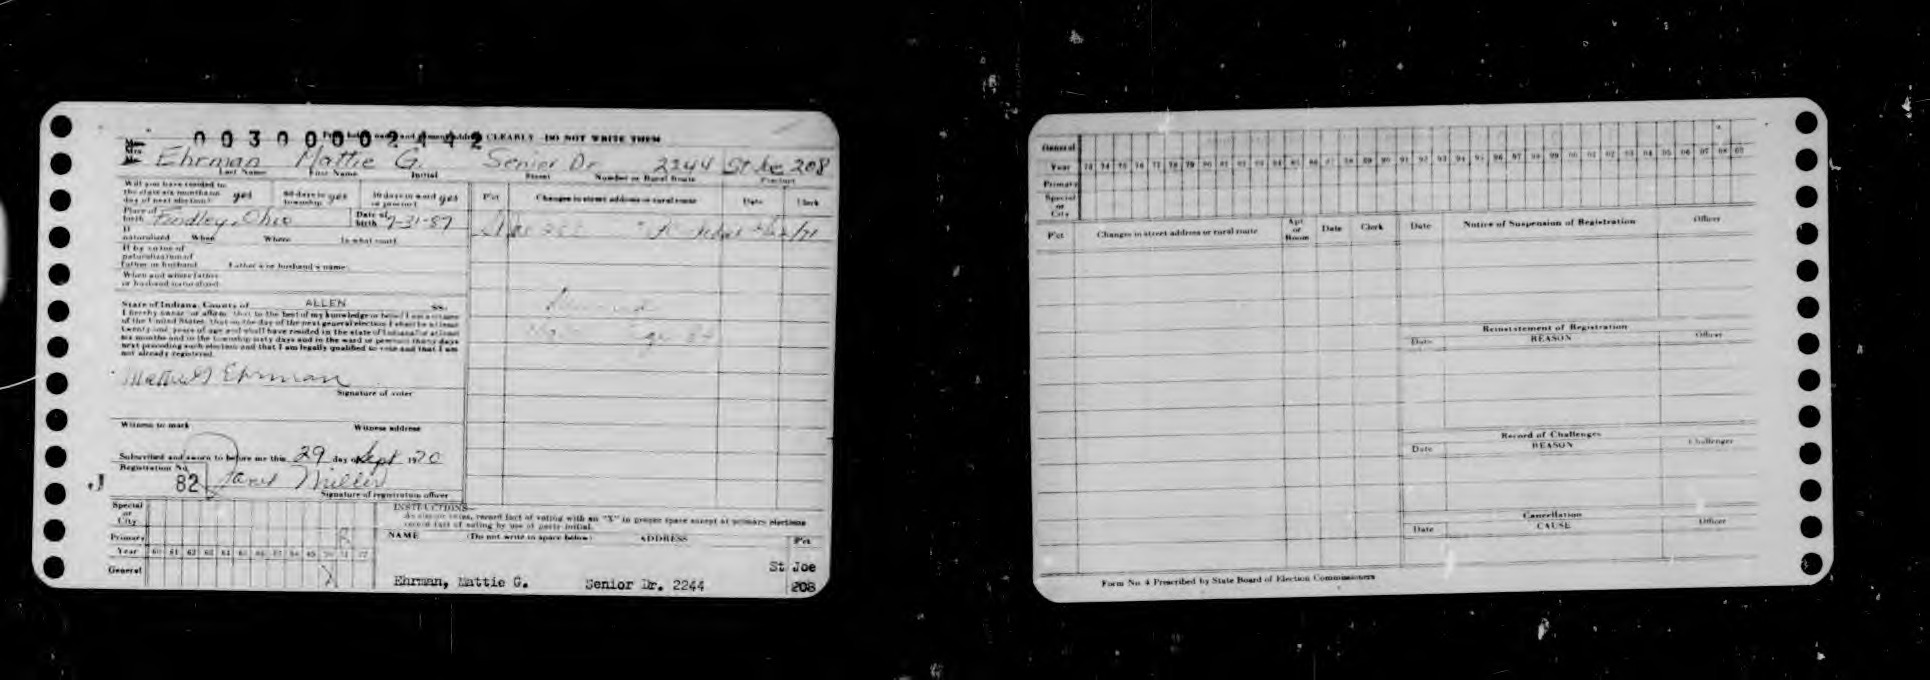 00300002442
CLEARLY DO NOT WRITE THEM
Ehrman Mattie G. Senior Dr 2244 St Joe 208
Last Name First Name Initial Street Number or Rural Route Precinct
Will you have resided in
the state six months on
day of next election? yes 60 days in township? yes 30 days in ward or precinct yes
P'ct Changes in street address or rural route Date Clerk
Place of birth Findley, Ohio Date of birth 7-31-87
If
naturalized When Where In what court
If by virtue of
naturalization of
father or husband Father's or husband's name
When and where father
or husband naturalized
State of Indiana, County of ALLEN ss.
I hereby swear or affirm, that to the best of my knowledge or belief I am a citizen
of the United States, that on the day of the next general election I shall be at least
twenty-one years of age and shall have resided in the state of Indiana for at least
six months and in the township sixty days and in the ward or precinct thirty days
next preceding such election and that I am legally qualified to vote and that I am
not already registered.
Mattie G Ehrman
Signature of voter
Witness to mark Witness address
Subscribed and sworn to before me this 29 day of Sept 1970
Registration No. 82 Janet Miller
Signature of registration officer
J
INSTRUCTIONS
record fact of voting with an "X" in proper space except at primary elections
record fact of voting by use of party initial.
Special
or
City
Primary R
Year 60 61 62 63 64 65 66 67 68 69 70 71 72
General
NAME (Do not write in space below) ADDRESS P'ct
Ehrman, Mattie G. Senior Dr. 2244 St Joe
208
General
Year 73 74 75 76 77 78 79 80 81 82 83 84 85 86 87 88 89 90 91 92 93 94 95 96 97 98 99 00 01 02 03 04 05 06 07 08 09
Primary
Special
or
City
P'ct Changes in street address or rural route Apt. or Room Date Clerk Date Notice of Suspension of Registration Officer
Reinstatement of Registration
Date REASON Officer
Record of Challenges
Date REASON Challenger
Cancellation
Date CAUSE Officer
Form No. 4 Prescribed by State Board of Election Commissioners